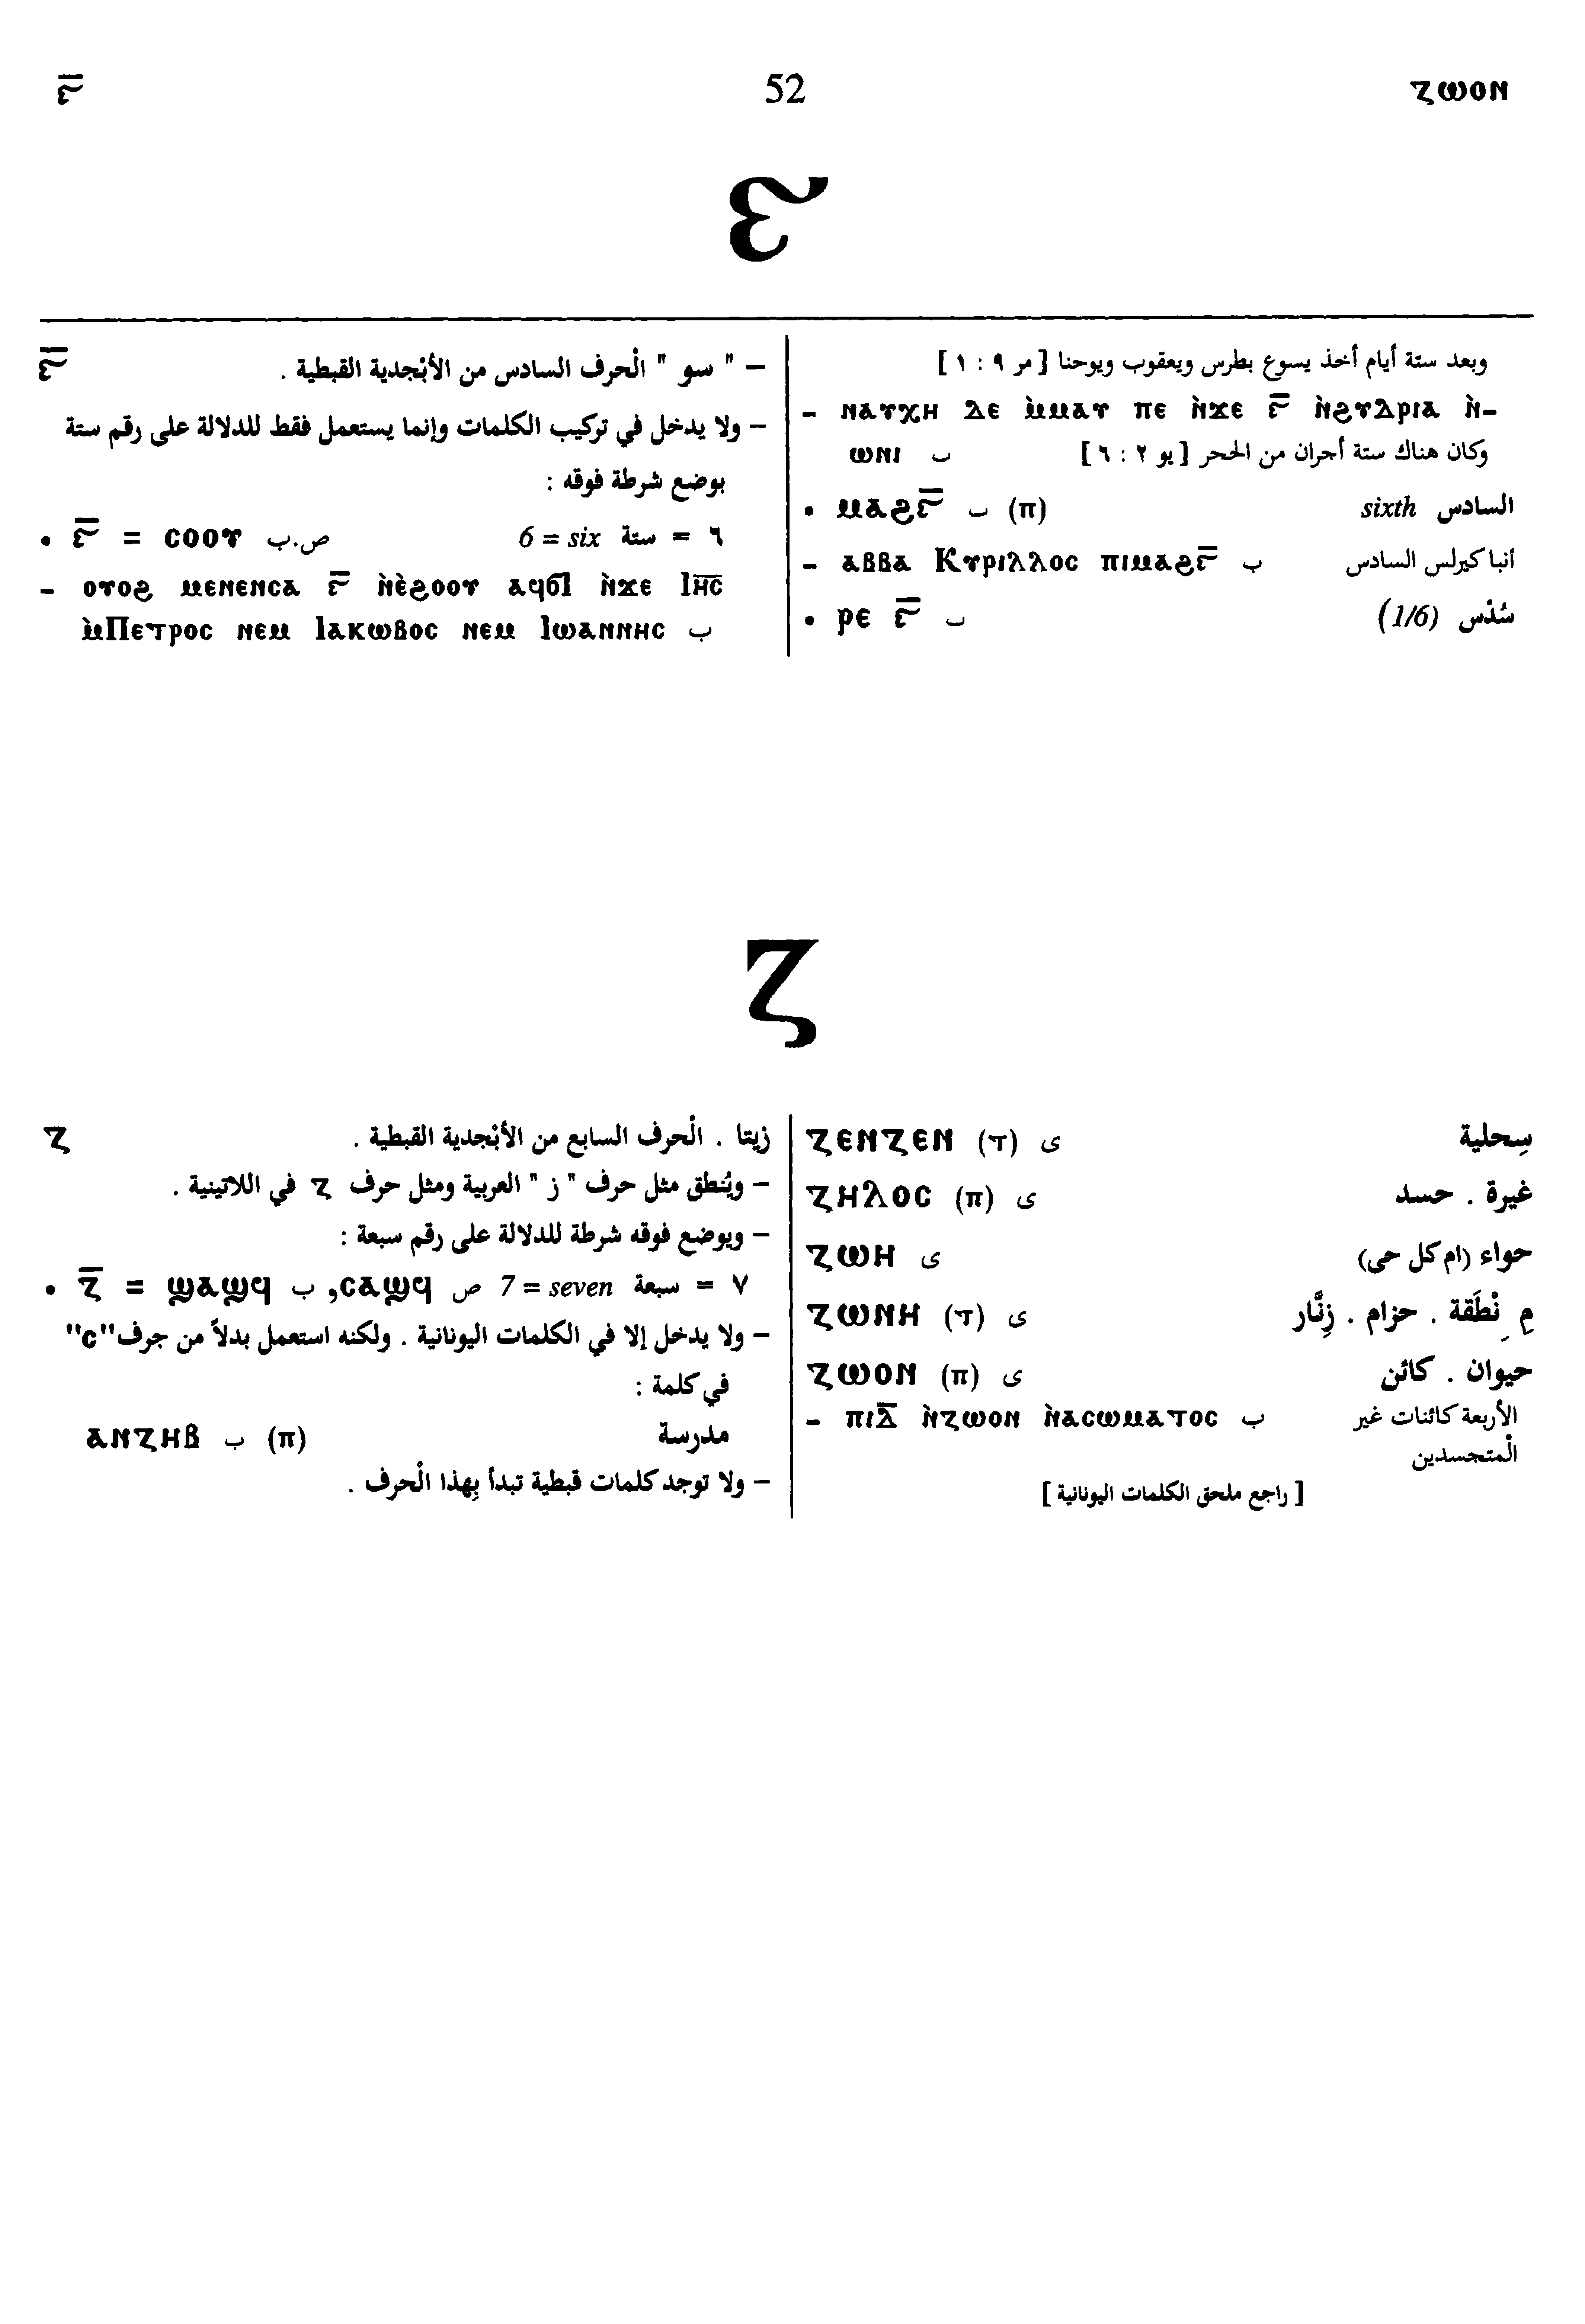 ⲋ̅ 52 ⲍⲱⲟⲛ
ⲋ
ⲋ̅ – " سو " الْحرف السادس من الأبْجدية القبطية .
– ولا يدخل في تركيب الكلمات وإنما يستعمل فقط للدلالة على رقم ستة
بوضع شرطة فوقه :
• ⲋ̅ = ⲥⲟⲟⲩ ص.ب 6 = six ستة = ٦
– ⲟⲩⲟϩ ⲙⲉⲛⲉⲛⲥⲁ ⲋ̅ ⲛ̀ⲉ̀ϩⲟⲟⲩ ⲁϥϭⲓ ⲛ̀ϫⲉ Ⲓⲏ̅ⲥ̅
ⲙ̀Ⲡⲉⲧⲣⲟⲥ ⲛⲉⲙ Ⲓⲁⲕⲱⲃⲟⲥ ⲛⲉⲙ Ⲓⲱⲁⲛⲛⲏⲥ ب
وبعد ستة أيام أخذ يسوع بطرس ويعقوب ويوحنا [ مر ٩ : ١ ]
– ⲛⲁⲩⲭⲏ ⲇⲉ ⲙ̀ⲙⲁⲩ ⲡⲉ ⲛ̀ϫⲉ ⲋ̅ ⲛ̀ϩⲩⲇⲣⲓⲁ ⲛ̀-
ⲱⲛⲓ ب وكان هناك ستة أجران من الحجر [ يو ٢ : ٦ ]
• ⲙⲁϩⲋ̅ ب (ⲡ) sixth السادس
– ⲁⲃⲃⲁ Ⲕⲩⲣⲓⲗⲗⲟⲥ ⲡⲓⲙⲁϩⲋ̅ ب أنبا كيرلس السادس
• ⲣⲉ ⲋ̅ ب (1/6) سُدْس
ⲍ
ⲍ زيتا . الْحرف السابع من الأبْجدية القبطية .
– ويُنطق مثل حرف " ز " العربية ومثل حرف ⲍ في اللاتينية .
– ويوضع فوقه شرطة للدلالة على رقم سبعة :
• ⲍ̅ = ϣⲁϣϥ ب ,ⲥⲁϣϥ ص 7 = seven سبعة = ٧
– ولا يدخل إلا في الكلمات اليونانية . ولكنه استعمل بدلاً من حرف "ⲥ"
في كلمة :
ⲁⲛⲍⲏⲃ ب (ⲡ) مدرسة
– ولا توجد كلمات قبطية تبدأ بِهذا الْحرف .
ⲍⲉⲛⲍⲉⲛ (ⲧ) ى سِحلية
ⲍⲏⲗⲟⲥ (ⲡ) ى غيرة . حسد
ⲍⲱⲏ ى حواء (ام كل حى)
ⲍⲱⲛⲏ (ⲧ) ى مِنْطَقة . حزام . زِنَّار
ⲍⲱⲟⲛ (ⲡ) ى حيوان . كائن
– ⲡⲓⲇ̅ ⲛ̀ⲍⲱⲟⲛ ⲛ̀ⲁⲥⲱⲙⲁⲧⲟⲥ ب الأربعة كائنات غير
الْمتجسدين
[ راجع ملحق الكلمات اليونانية ]